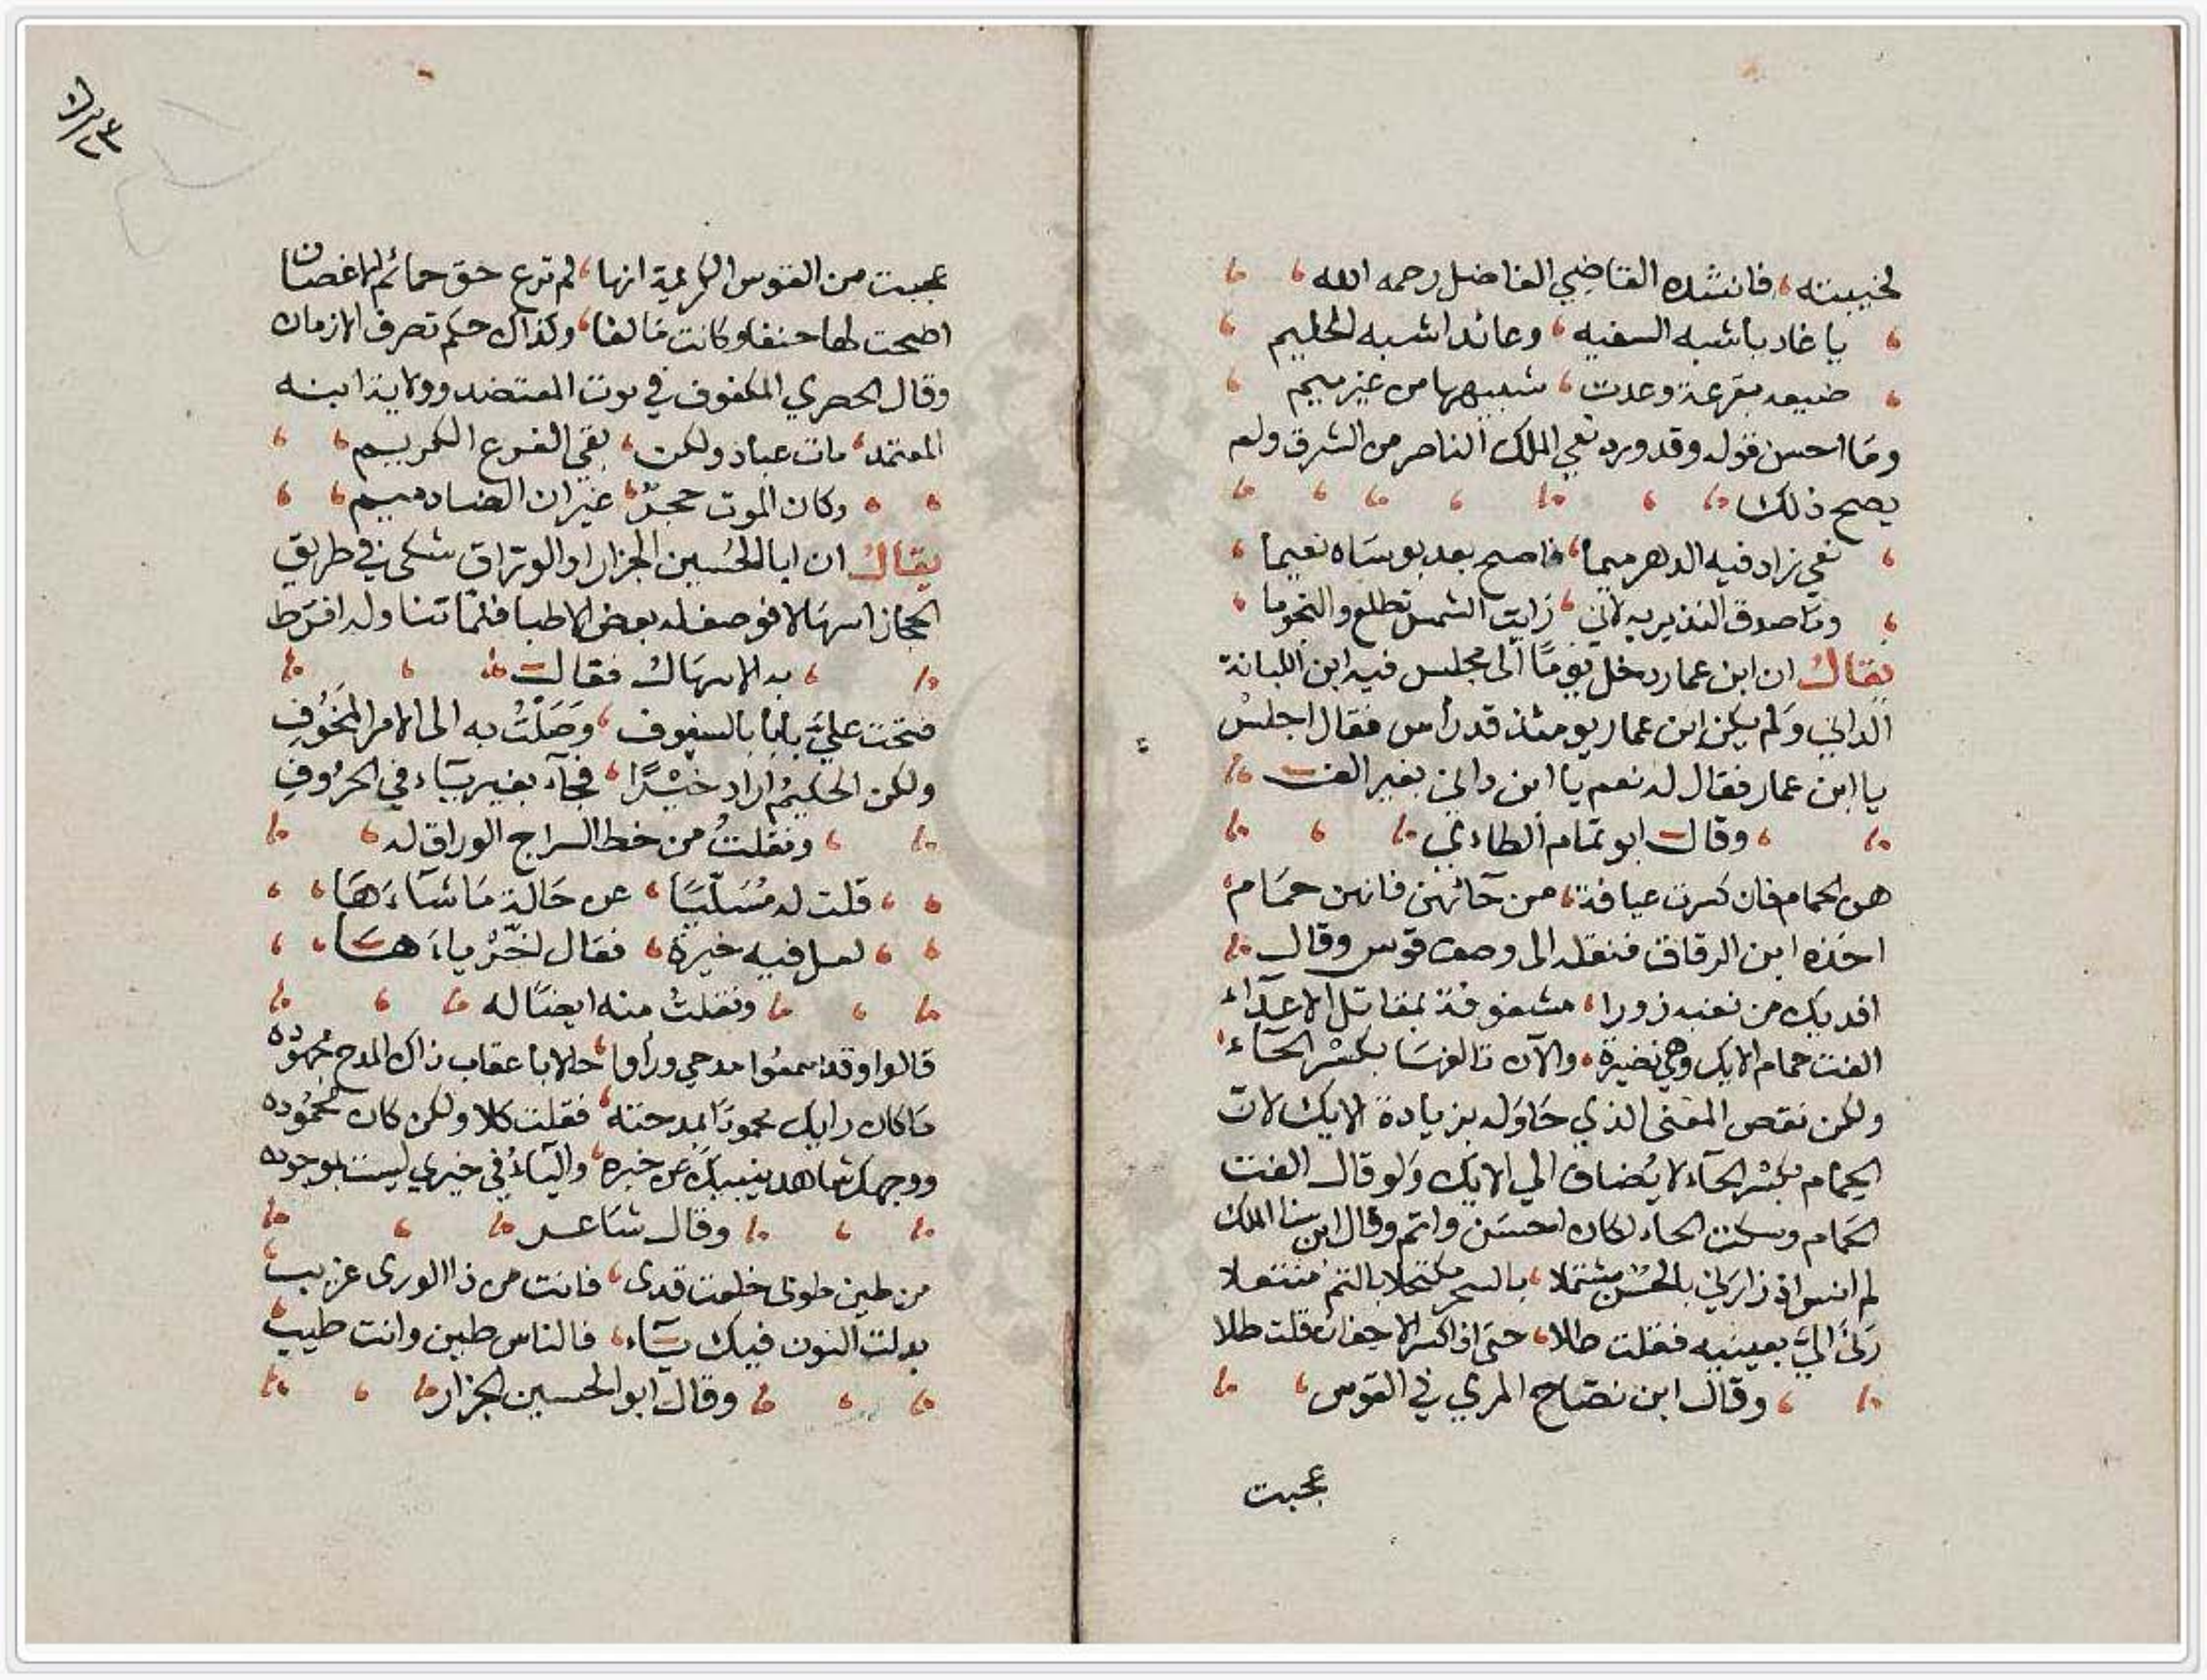 لخيبته، فانشده القاضي الفاضل رحمه الله
يا غاديا شبه السفيه، وعائدا شبه الحليم
ضيعه بقرعة وعدت، شبيهها من غير ميم
وما احسن قوله وقد ورد نعي الملك الناصر من الشرق ولم
يصح ذلك
نعي زاد فيه الدهر ميما، فاصبح بعد بوساه نعيما
وما صدق النذير به لاني، رايت الشمس تطلع والنجوما
يقال ان ابن عمار دخل يوما الى مجلس فيه ابن اللبانة
الداني ولم يكن ابن عمار يومئذ قدرأس فقال اجلس
يا ابن عمار فقال له نعم يا ابن داني بغير الف
وقال ابو تمام الطاءي
هن الحمام فان كسرت عيافة، من حائهن فانهن حمام
اخذه ابن الزقاق فنقله الى وصف قوس وقال
افديك من نبعيه زورا، مشغوفة بمقاتل الاعداء
الفت حمام الايك وهي نضيرة، والآن تالفها بكسر الحآء
ولكن نقص المعنى الذي حاوله بزيادة الايك لان
الحمام بكسر الحآء لا يضاف الي الايك ولو قال الفت
الحمام وسكت الحاء لكان احسن واتم وقال ابن سنا الملك
لم انس اذ زارني بالحسن مشتملا، بالسحر مكتحلا بالتم منتعلا
رنا الي بعينيه فقلت طلا، حتى اذا كسر الاجفان قلت طلا
وقال ابن نصاح المري في القوس
عجبت
عجبت من القوس الكريمة انها، لم ترع حق حمائم الاغصان
اضحت لها حنفا وكانت مالفا، وكذاك حكم تصرف الازمان
وقال الحصري المكفوف في موت المعتضد وولاية ابنه
المعتمد، مات عباد ولكن، بقي الفرع الكريم
وكان الموت حجر، غيران الضاد ميم
يقال ان ابا الحسين الجزار او الوراق شكى في طريق
الحجاز اسهالا فوصف له بعض الاطبا فلما تناوله افرط
به الاسهال فقال
فتحت علي بابا بالسفوف، وصلت به الى الامر المخوف
ولكن الحكيم اراد خيرا، فجآء بغير ياء في الحروف
ونقلت من خط السراج الوراق له
قلت له مسليا، عن حالة ما شآءها
لعل فيه خيرة، فقال لخر ياءها
ونقلت منه ايضا له
قالوا وقد سمعوا مدحي وراوا، حالا باعقاب ذاك المدح مجهوده
ما كان رايك محمودا بمدحته، فقلت كلا ولكن كان محموده
ووجهك شاهد ينبيك عن خبره، والياء في خيري ليست بموجوده
وقال شاعر
من طين طوبى خلقت قدى، فانت من ذا الورى غريب
بدلت النون فيك ياء، فالناس طين وانت طيب
وقال ابو الحسين الجزار